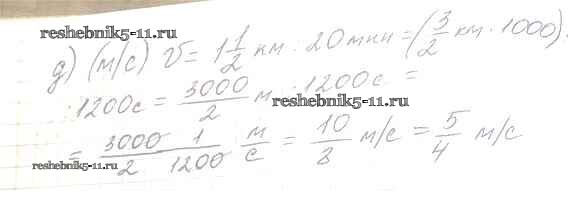 reshebnik5-11.ru
д) (м/с) V = 1 1/2 км : 20 мин = (3/2 км · 1000) :
: 1200 с = 3000/2 м : 1200 с =
reshebnik5-11.ru
= 3000/2 1/1200 м/с = 10/8 м/с = 5/4 м/с
reshebnik5-11.ru